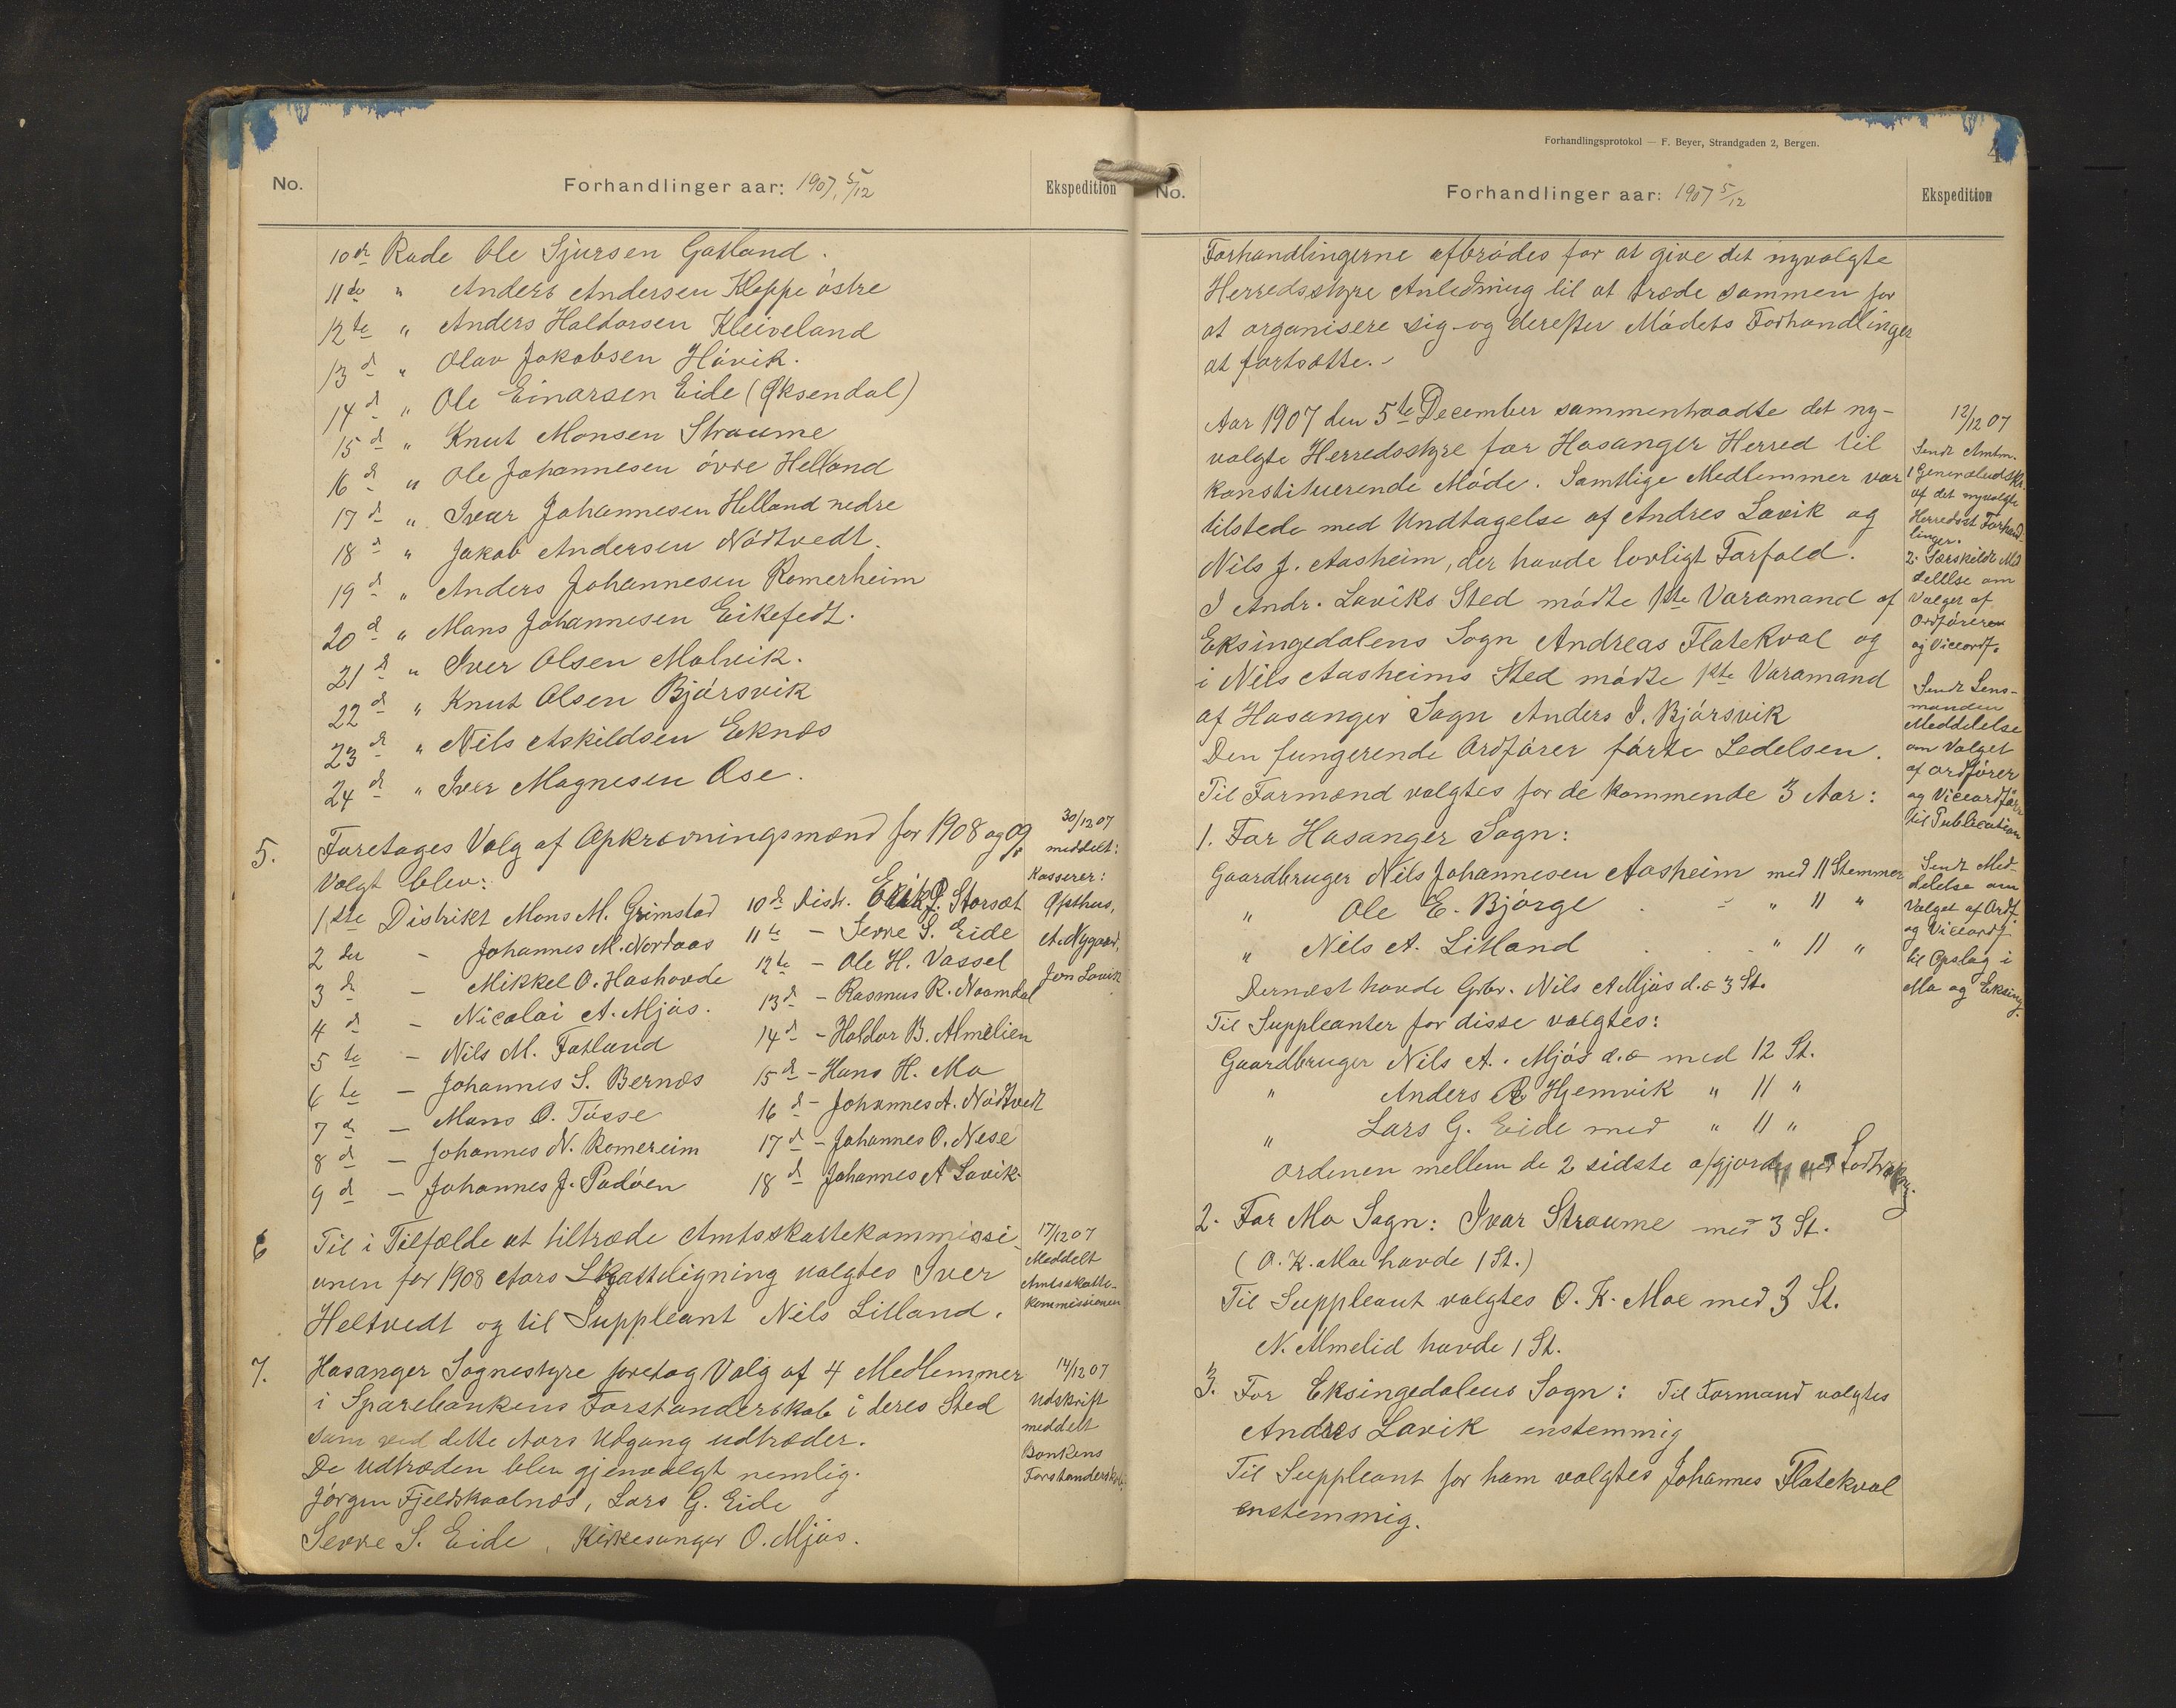 No.
Forhandlinger aar: 1907, 5/12
Ekspedition
10de Rode Ole Sjursen Gatland.
11te " Anders Andersen Kleppe östre
12te " Anders Haldorsen Kleiveland
13d " Olav Jakobsen Hövik.
14d " Ole Einarsen Eide (Øksendal)
15d " Knut Monsen Straume
16d " Ole Johannesen övre Helland
17d " Ivar Johannesen Helland nedre
18d " Jakob Andersen Nödtvedt.
19d " Anders Johannesen Romerheim
20d " Mons Johannesen Eikefedt.
21d " Iver Olsen Molvik.
22d " Knut Olsen Bjørsvik
23d " Nils Askildsen Eknæs
24d " Iver Magnesen Ose.
5. Foretages Valg af Opkrævningsmænd for 1908 og 09.
Valgt blev:
1ste Distrikt Mons M. Grimstad
2den - Johannes M. Nordaas
3di - Mikkel O. Hashovde
4d - Nicolai A. Mjøs.
5te - Nils M. Fatland
6te - Johannes S. Bernæs
7d - Mons O. Tösse
8d - Johannes N. Romereim
9d - Johannes J. Padöen
10de Distr. Erik J. Storsæt
11te - Sevre S. Eide
12te - Ole H. Vassel
13d - Rasmus R. Naamdal
14d - Haldor B. Almelien
15d - Hans H. Mo
16d - Johannes A. Nödtvedt
17d - Johannes O. Nese
18d Johannes A Lavik.
30/12 07
meddelt:
Kasserer:
Opthus,
A. Nygaard,
Jon Lavik
6 Til i Tilfælde at tiltræde Amtsskattekommissi-
onen for 1908 Aars Skatteligning valgtes Iver
Heltvedt og til Suppleant Nils Litland.
17/12 07
Meddelt
Amtsskatte-
kommissionen
7. Hosanger Sognestyre foretog Valg af 4 Medlemmer
i Sparebankens Forstanderskab i deres Sted
som ved dette Aars Udgang udtræder.
De Udtræden blev gjenvalgt nemlig.
Jörgen Fjeldskaalnæs, Lars G. Eide
Sevre S. Eide, Kirkesanger O. Mjøs.
14/12 07
Udskrift
meddelt
Bankens
Forstandersk.
Forhandlingsprotokol — F. Beyer, Strandgaden 2, Bergen.
4
No.
Forhandlinger aar: 1907 5/12
Ekspedition
Forhandlingerne afbrödes for at give det nyvalgte
Herredsstyre Anledning til at træde sammen for
at organisere sig og derefter Mödets Forhandlinger
at fortsætte.-
Aar 1907 den 5te December sammentraadte det ny-
valgte Herredsstyre for Hosanger Herred til
konstituerende Möde. Samtlige Medlemmer var
tilstede med Undtagelse af Andres Lavik og
Nils J. Aasheim, der havde lovligt Forfald.
I Andr. Laviks Sted mödte 1ste Varamand af
Eksingedalens Sogn Andreas Flatekval og
i Nils Aasheims Sted mödte 1ste Varamand
af Hosanger Sogn Anders I. Bjørsvik
Den fungerende Ordförer förte Ledelsen.
Til Formænd valgtes for de kommende 3 Aar:
1. For Hosanger Sogn:
Gaardbruger Nils Johannesen Aasheim med 11 Stemmer
" Ole E. Bjørge - " 11 "
" Nils A. Litland - " 11 "
Dernæst havde Grbr. Nils A Mjøs d.æ 3 St.
Til Suppleanter for disse valgtes:
Gaardbruger Nils A. Mjøs d.æ med 12 St.
" Anders Hjemvik " 11 "
" Lars G. Eide med " 11 "
Ordenen mellem de 2 sidste afgjordes ved Lodtrækng.
2. For Mo Sogn: Ivar Straume med 3 St.
(O. K. Moe havde 1 St.)
Til Suppleant valgtes O. K. Moe med 3 St.
N. Almelid havde 1 St.
3. For Eksingedalens Sogn: Til Formand valgtes
Andres Lavik enstemmig
Til Suppleant for ham valgtes Johannes Flatekval
enstemmig.
12/12 07
Sendt Amtm.
1 Generaludskr.
af det nyvalgte
Herredsst Forhand-
linger.
2. Særskildt Med
dellse om
Valget af
Ordföreren
og Viceordf.
Sendt Lens-
manden
Meddelelse
om Valget
af Ordförer
og Viceordförer
til Publication
Sendt Med-
delelse om
Valget af Ordf.
og Viceordf.
til Opslag i
Mo og Eksing.